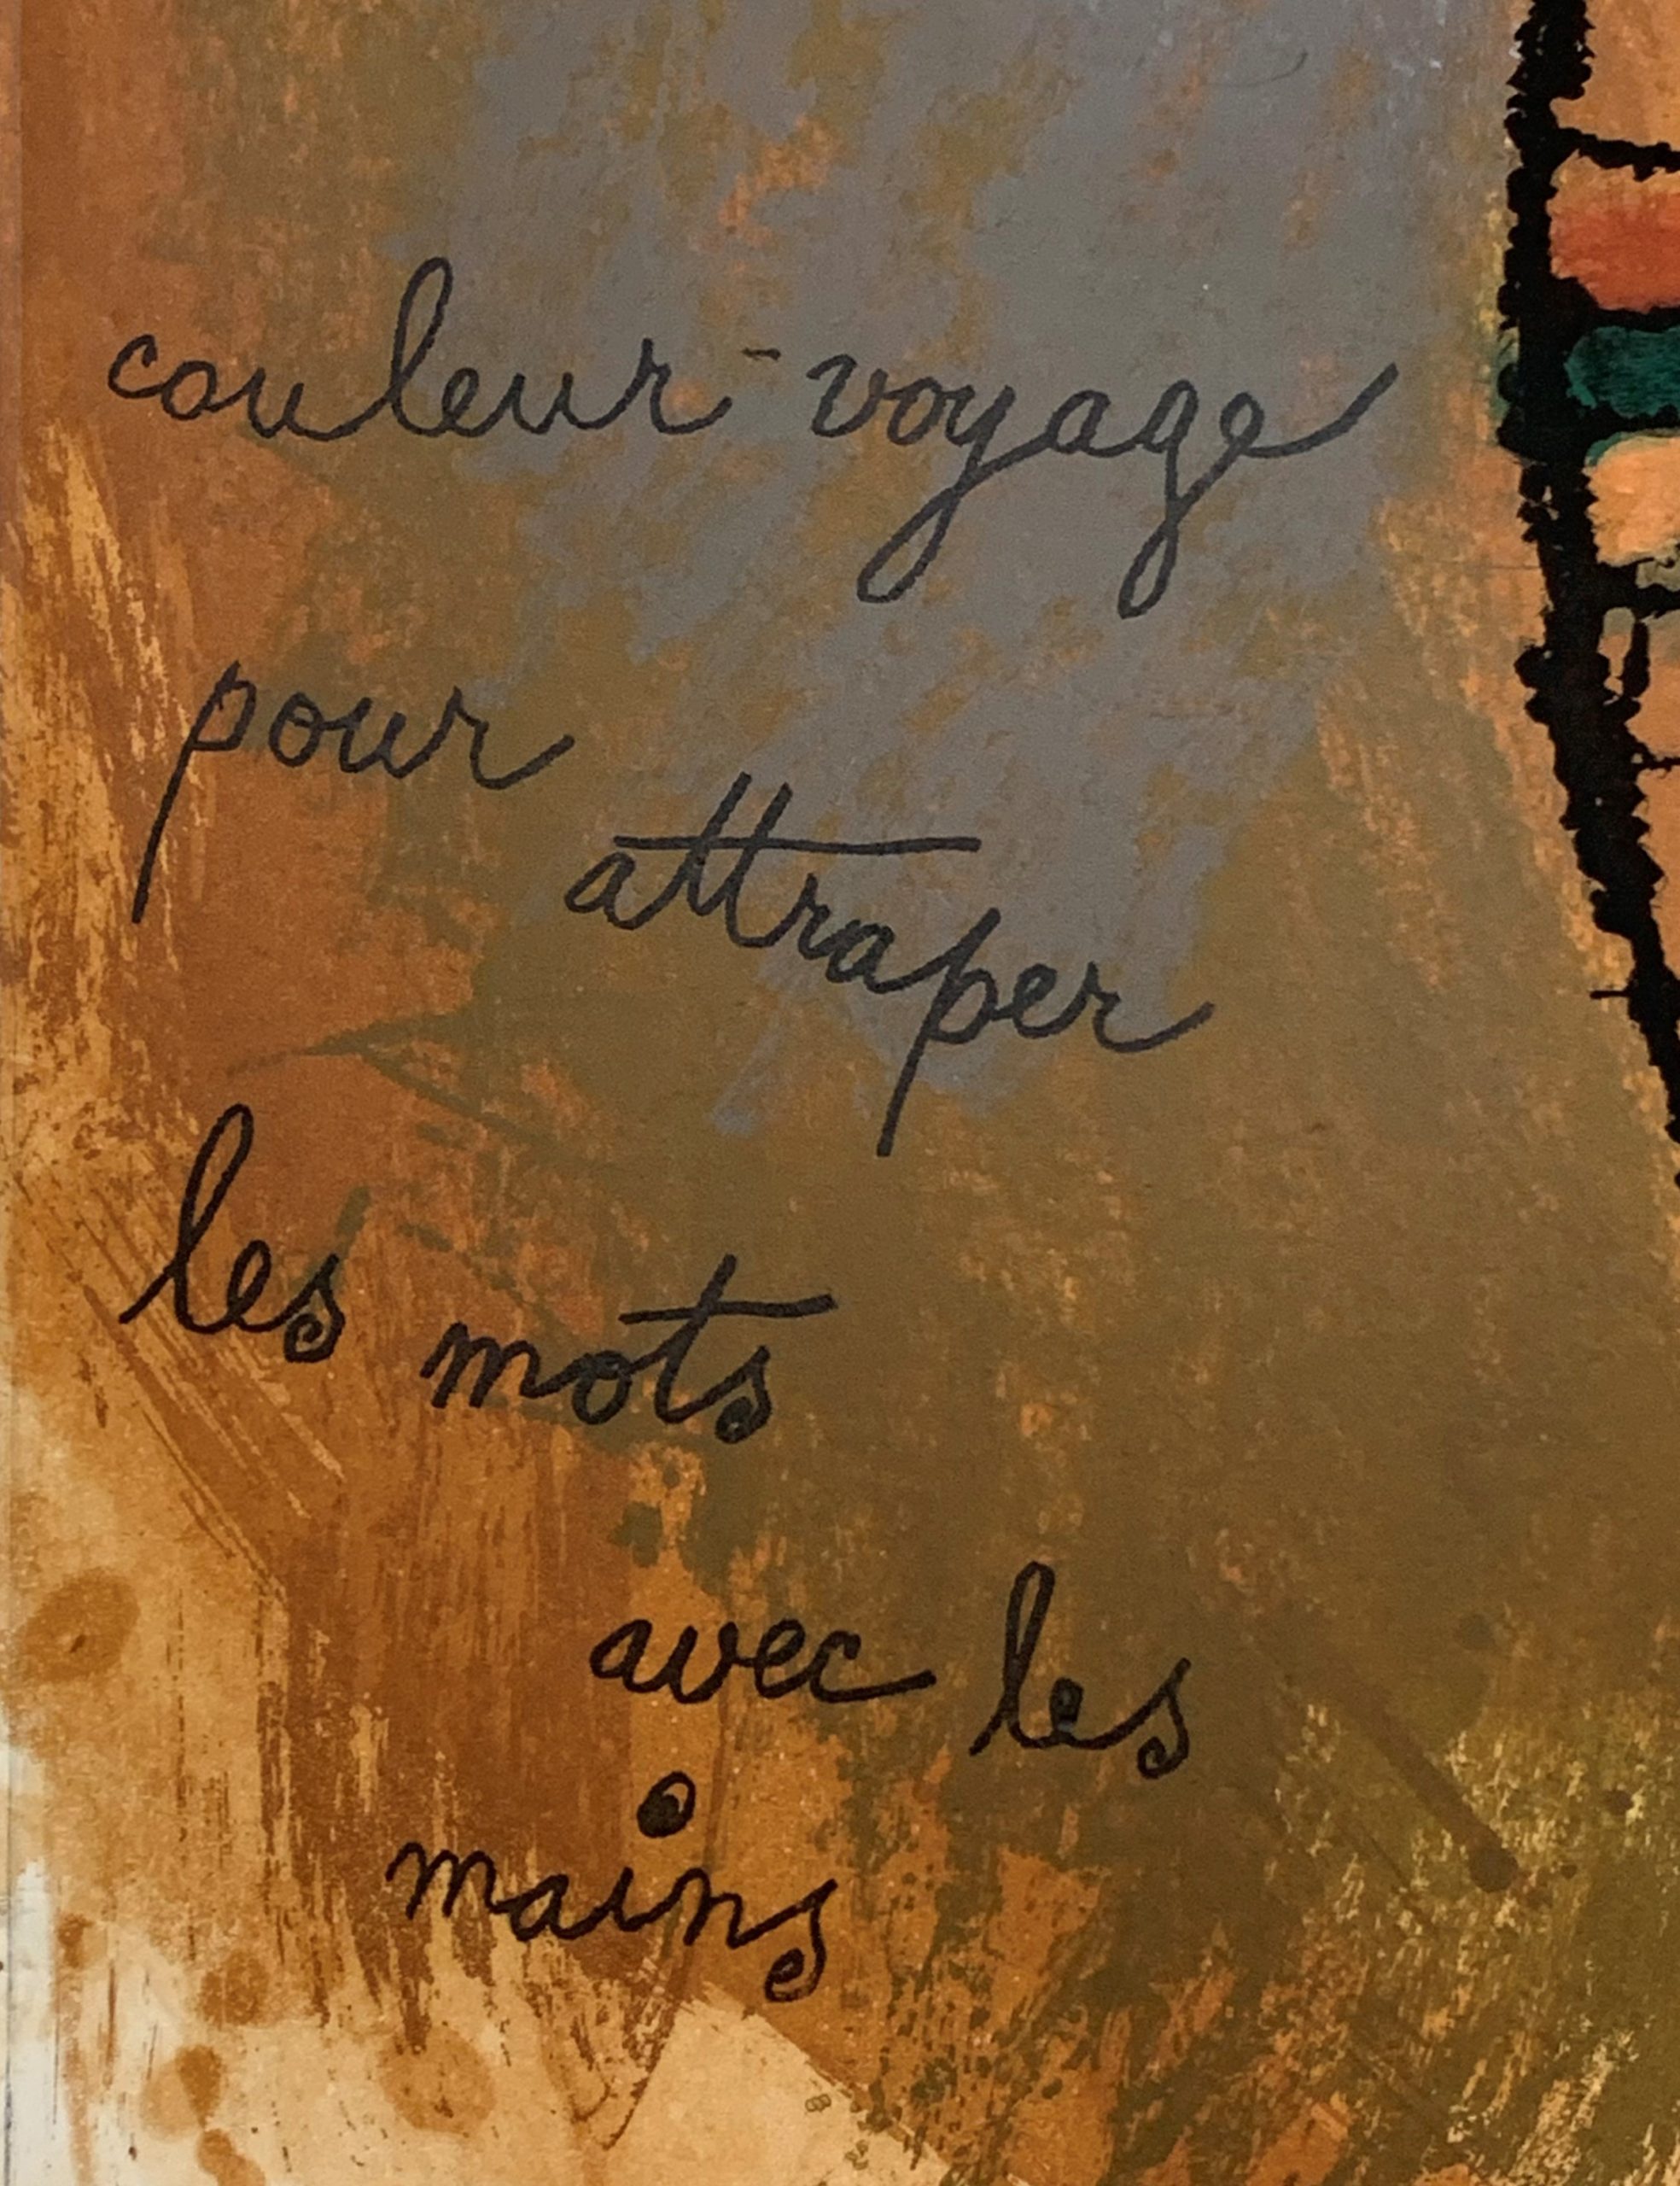 couleur-voyage
pour
attraper
les mots
avec les
mains